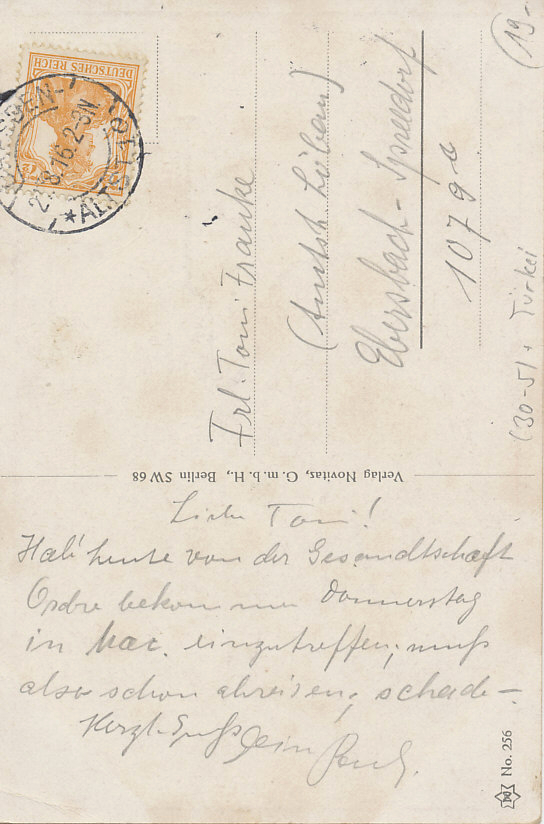 19.-
DEUTSCHES REICH
7½
ALTST.
.8.16. 2-3N
Frl. Toni Franke
(Amtsh Löbau)
Ebersbach-Spreedorf
1079 e
(30-5) + Türkei
Verlag Novitas, G. m. b. H., Berlin SW 68
Liebe Toni!
Hab' heute von der Gesandtschaft
Ordre bekommen Donnerstag
in einzutreffen; muß
also schon abreisen; schade-
Herzl. Gruß Dein Paul.
No. 256